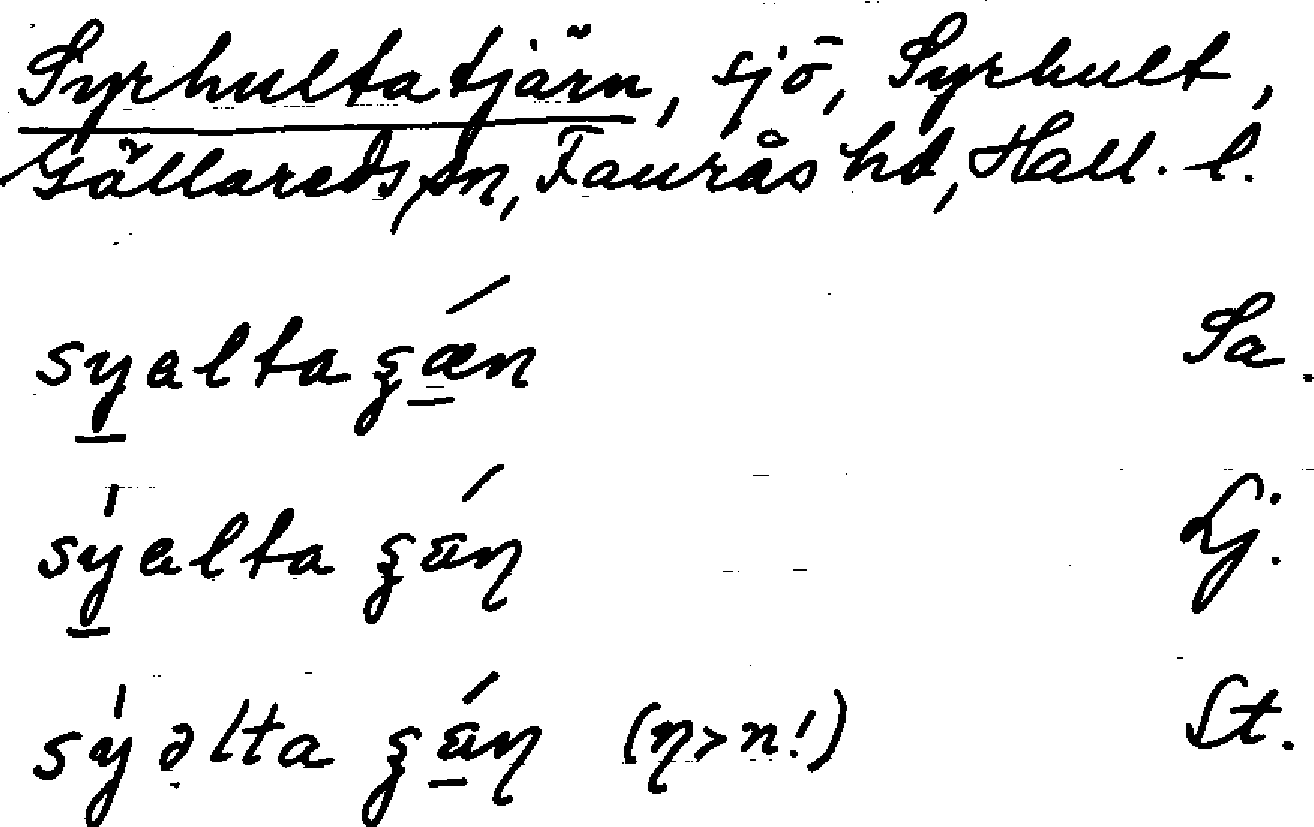 Syrhultatjärn, sjö, Syrhult,
Gällareds sn, Faurås hd, Hall. l.
sy̲alta ʂǽ̲n Sa.
sý̲alta ʂä́ɳ Lj.
sýəlta ʂä̲́ɳ (ɳ>n!) St.